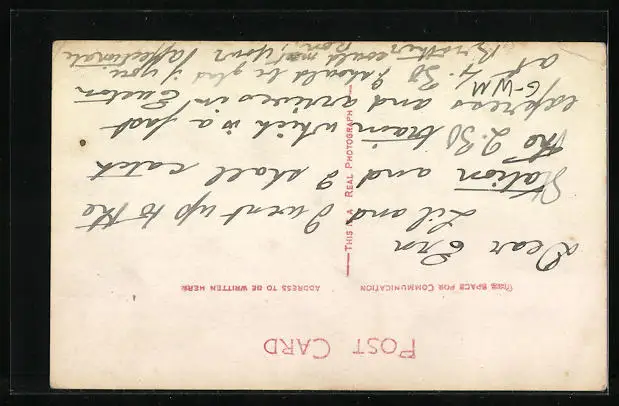 POST CARD
THIS SPACE FOR COMMUNICATION
ADDRESS TO BE WRITTEN HERE
THIS IS A REAL PHOTOGRAPH
Dear Ern
Lil and I went up to the
Station and I shall catch
the 2.30 train which is a fast
express and arrives in Euston
G-WM
at 4.30 I should be glad if you
could meet your affectionate
Brother Ron.